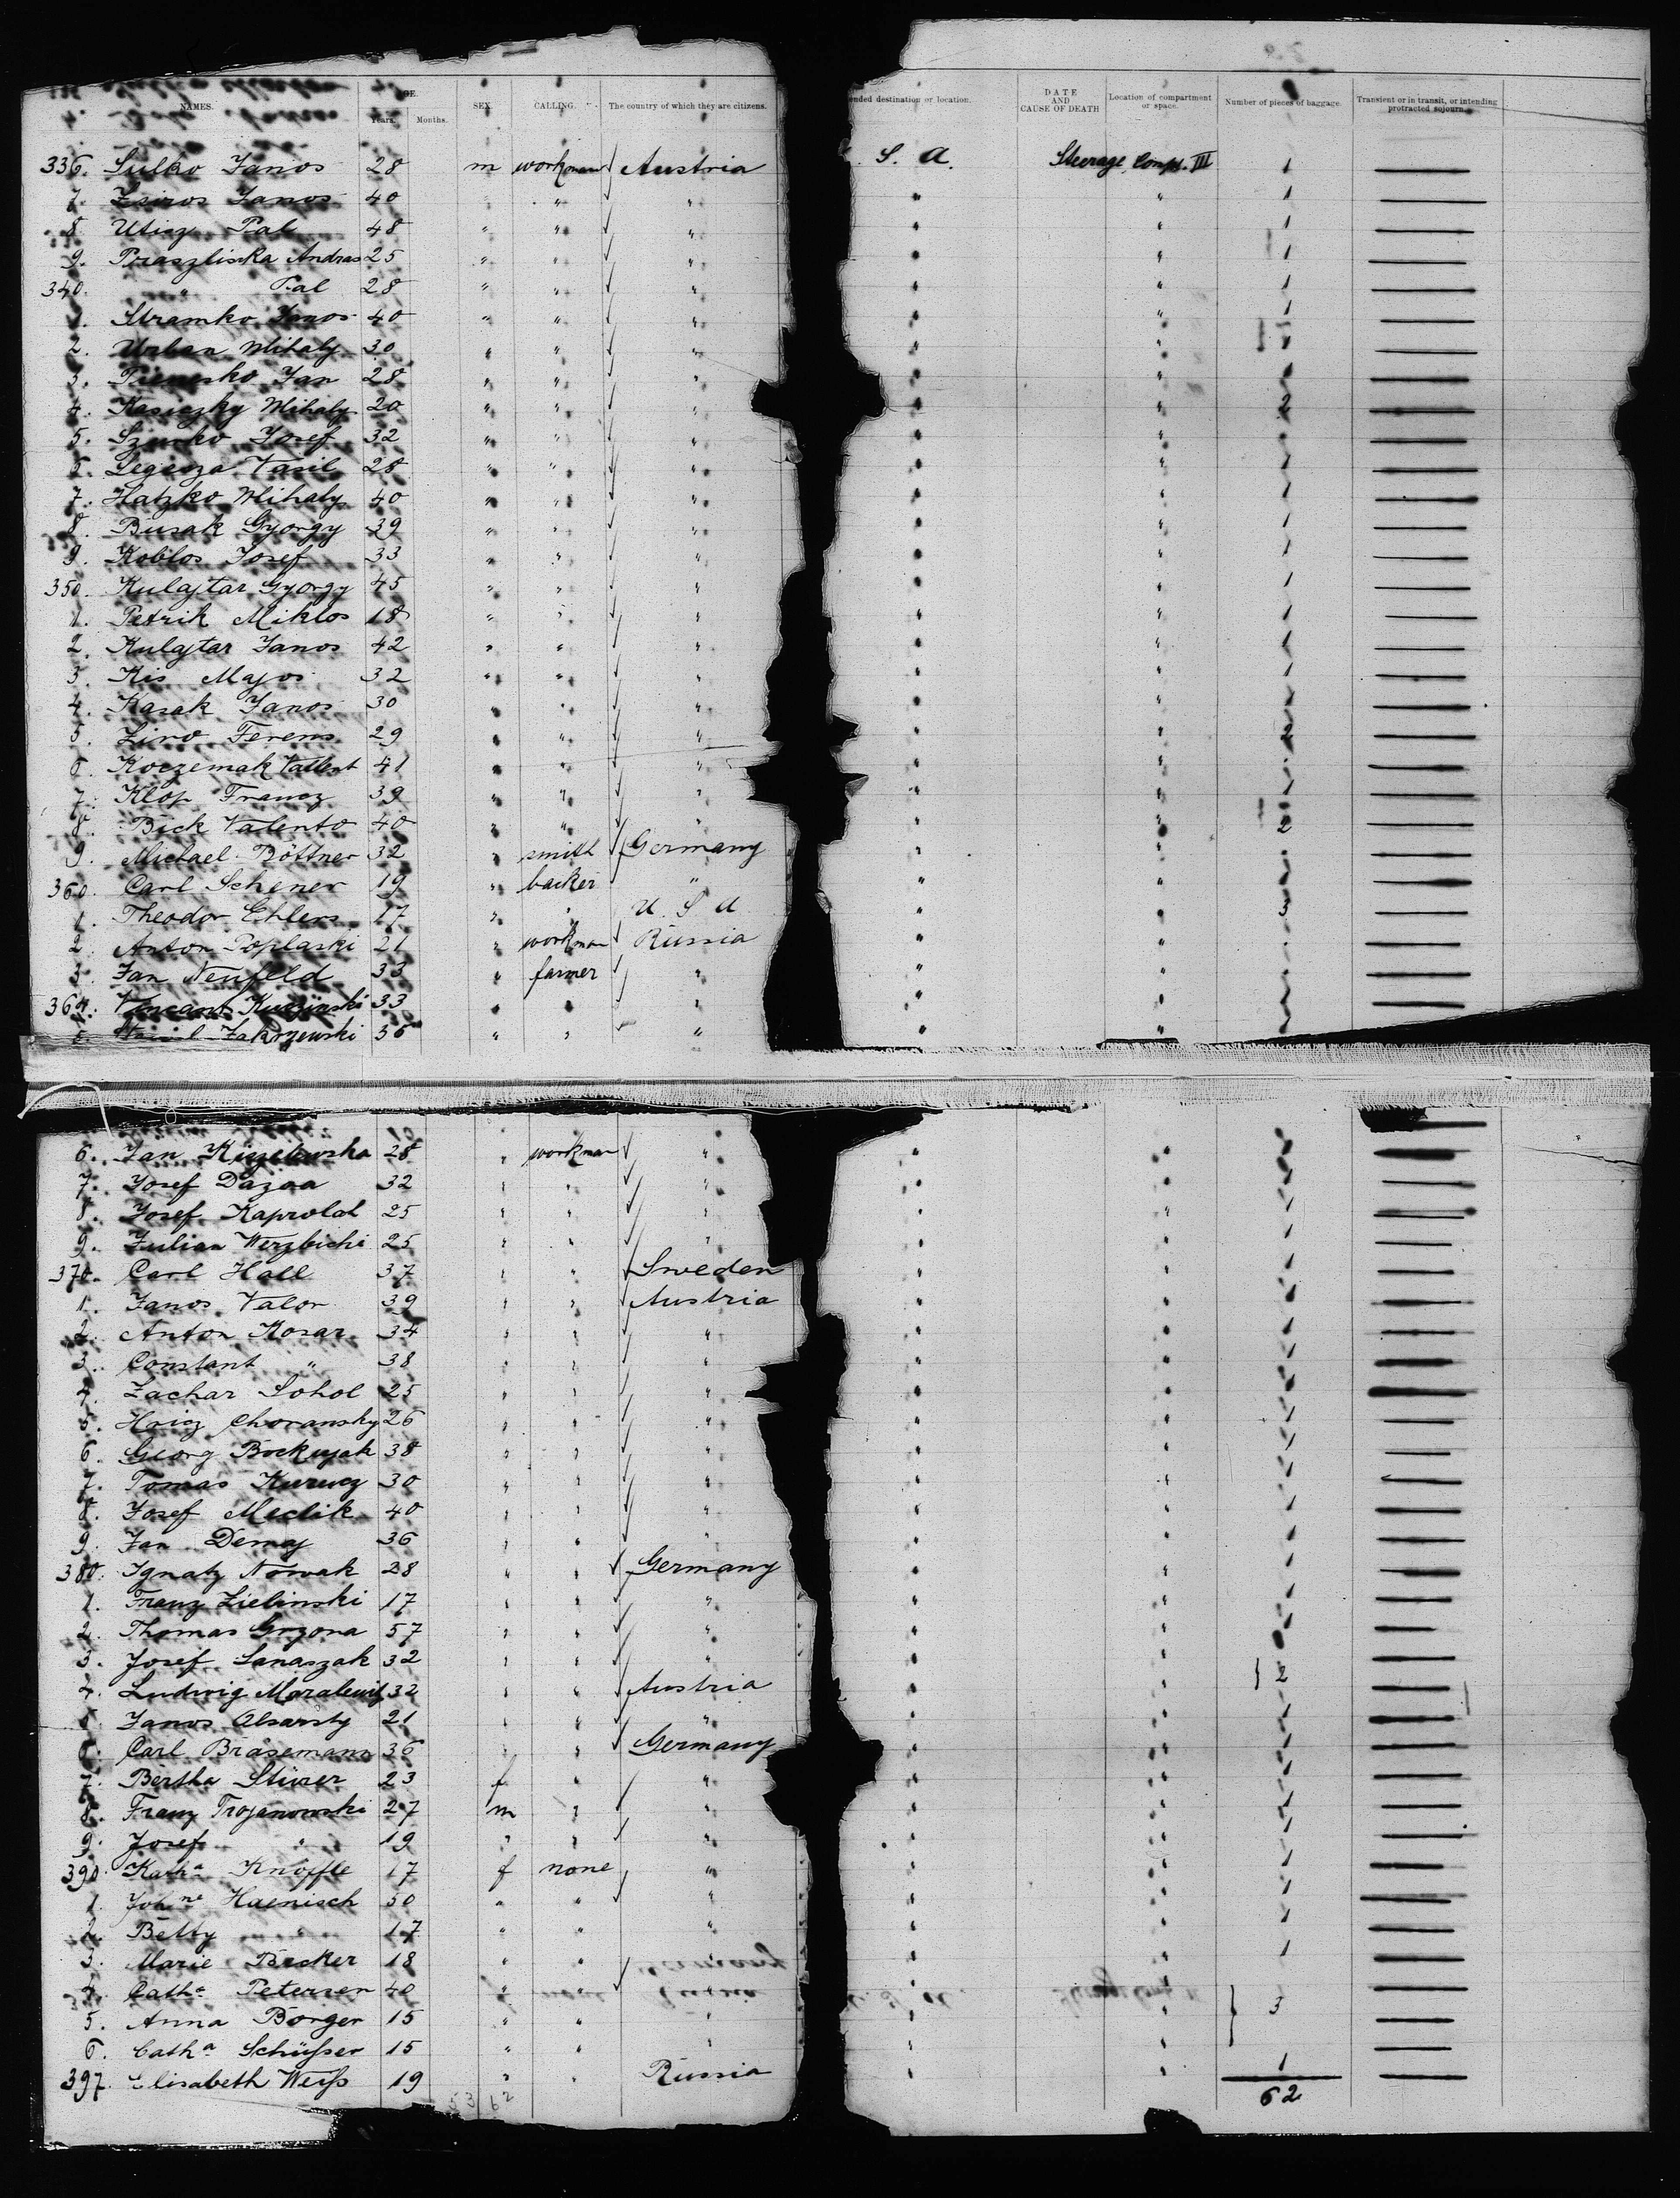 NAMES. AGE. Years. Months. SEX. CALLING. The country of which they are citizens. ended destination or location. DATE AND CAUSE OF DEATH Location of compartment or space. Number of pieces of baggage. Transient or in transit, or intending protracted sojourn.
336. Sulko Janos 28 m workman Austria S. A. Steerage Compt. III 1
7. Zsiros Janos 40 " " " " " 1
8. Uticz Pal 48 " " " " " 1
9. Praszliska Andras 25 " " " " " 1
340. " Pal 28 " " " " " 1
1. Stramko Janos 40 " " " " " 1
2. Urban Mihaly 30 " " " " " 1
3. Jan 28 " " " " "
4. Kasiczky Mihaly 20 " " " " " 2
5. Szurko Josef 32 " " " " " 1
6. Legeza Vasil 28 " " " " " 1
7. Hatzko Mihaly 40 " " " " " 1
8. Busak Gyorgy 39 " " " " " 1
9. Koblos Josef 33 " " " " " 1
350. Kulajtar Gyorgy 45 " " " " " 1
1. Petrik Miklos 18 " " " " " 1
2. Kulajtar Janos 42 " " " " " 1
3. Kis Majos 32 " " " " " 1
4. Kasak Janos 30 " " " " "
5. Ziro Ferens 29 " " " " " 2
6. Koczemak 41 " " " " "
7. Klop Francz 39 " " " " " 1
8. Bick Valento 40 " " " " " 2
9. Michael Röttner 32 " smith Germany " "
360. Carl Schener 19 " backer " " "
1. Theodor Ehlers 17 " " U. S. A " " 3
2. Anton Poplaski 21 " workman Russia " "
3. Jan Neufeld 33 " farmer " " "
364. Kuczinski 33 " " " " "
5. Zakrzewski 35 " " " " "
6. Jan 28 " workman " " "
7. Josef Dazaa 32 " " " " " 1
8. Josef Kaprolat 25 " " " " " 1
9. Julian Werzbicki 25 " " " " " 1
370. Carl Hall 37 " " Sweden " " 1
1. Janos Valor 39 " " Austria " " 1
2. Anton Kosar 34 " " " " " 1
3. Constant " 38 " " " " " 1
4. Zachar Sohol 25 " " " " " 1
5. Hricz Choransky 26 " " " " " 1
6. Georg 38 " " " " " 1
7. Tomas Kurucz 30 " " " " " 1
8. Josef Meclik 40 " " " " " 1
9. Jan Demaj 36 " " " " " 1
380. Ignatz Nowak 28 " " Germany " " 1
1. Franz Zielinski 17 " " " " " 1
2. Thomas Grzona 57 " " " " "
3. Josef Lanaszak 32 " " " " " } 2
4. Ludwig 32 " " Austria " "
5. Janos 21 " " " " " 1
6. Carl Brasemann 36 " " Germany " " 1
7. Bertha Stürer 23 f " " " " 1
8. Franz Trojanowski 27 m " " " " 1
9. Josef " 19 " " " " " 1
390. Kath.a Knöffle 17 f none " " " 1
1. Joh.ne Haenisch 50 " " " " " 1
2. Betty " 17 " " " " " 1
3. Marie Becker 18 " " " " 1
4. Cath.a Petersen 40 " " " "
5. Anna Borger 15 " " " " " } 3
6. Cath.a Schüsser 15 " " " " "
397. Elisabeth Weiss 19 " " Russia " " 1
53 62 62